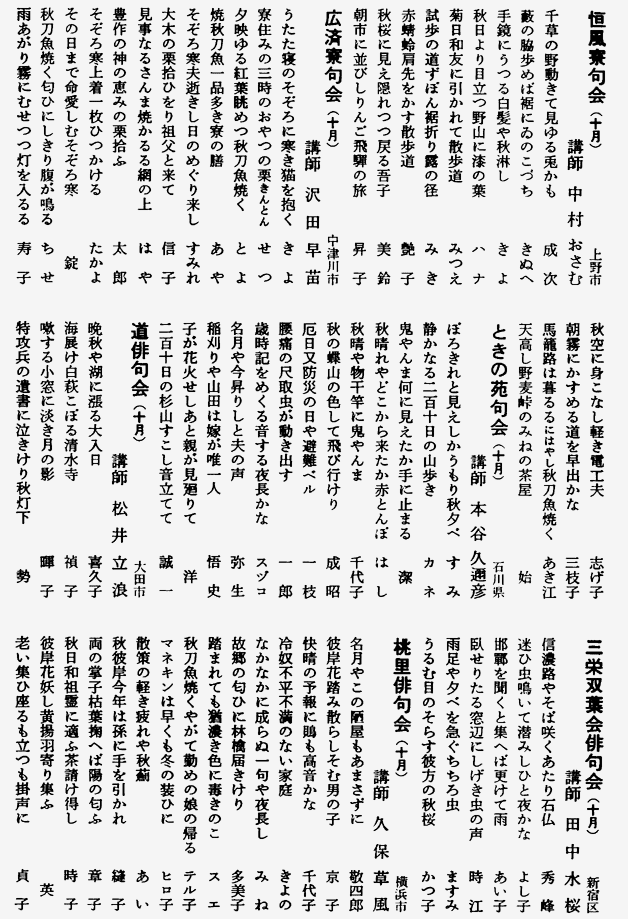 恒風寮句会（十月）
上野市
講師 中村 おさむ
千草の野動きて見ゆる兎かも 成次
藪の脇歩めば裾にゐのこづち きぬへ
手鏡にうつる白髪や秋淋し きよ
秋日より目立つ野山に漆の葉 ハナ
菊日和友に引かれて散歩道 みつえ
試歩の道ずぼん裾折り露の径 みき
赤蜻蛉肩先をかす散歩道 艶子
秋桜に見え隠れつつ戻る吾子 美鈴
朝市に並びしりんご飛驒の旅 昇子
広済寮句会（十月）
中津川市
講師 沢田 早苗
うたた寝のそぞろに寒き猫を抱く きよ
寮住みの三時のおやつの栗きんとん せつ
夕映ゆる紅葉眺めつ秋刀魚焼く とよ
焼秋刀魚一品多き寮の膳 あや
そぞろ寒夫逝きし日のめぐり来し すみれ
大木の栗拾ひをり祖父と来て 信子
見事なるさんま焼かるる網の上 はや
豊作の神の恵みの栗拾ふ 太郎
そぞろ寒上着一枚ひつかける たかよ
その日まで命愛しむそぞろ寒 錠
秋刀魚焼く匂ひにしきり腹が鳴る ちせ
雨あがり霧にむせつつ灯を入るる 寿子
秋空に身こなし軽き電工夫 志げ子
朝霧にかすめる道を早出かな 三枝子
馬籠路は暮るるにはやし秋刀魚焼く あき江
天高し野麦峠のみねの茶屋 始
ときの苑句会（十月）
石川県
講師 本谷 久邇彦
ぼろきれと見えしかうもり秋夕べ すみ
静かなる二百十日の山歩き カネ
鬼やんま何に見えたか手に止まる 潔
秋晴れやどこから来たか赤とんぼ はし
秋晴や物干竿に鬼やんま 千代子
秋の蝶山の色して飛び行けり 成昭
厄日又防災の日や避難ベル 一枝
腰痛の尺取虫が動き出す 一郎
歳時記をめくる音する夜長かな スヅコ
名月や今昇りしと夫の声 弥生
稲刈りや山田は嫁が唯一人 悟史
子が花火せしあと親が見廻りて 洋
二百十日の杉山すこし音立てて 誠一
道俳句会（十月）
大田市
講師 松井 立浪
晩秋や湖に漲る大入日 喜久子
海展け白萩こぼる清水寺 禎子
嗽する小窓に淡き月の影 暉子
特攻兵の遺書に泣きけり秋灯下 勢
三栄双葉会俳句会（十月）
新宿区
講師 田中 水桜
信濃路やそば咲くあたり石仏 秀峰
迷ひ虫鳴いて潜みしひと夜かな よし子
邯鄲を聞くと集へば更けて雨 あい子
臥せりたる窓辺にしげき虫の声 時江
雨足や夕べを急ぐちちろ虫 ますみ
うるむ目のそらす彼方の秋桜 かつ子
桃里俳句会（十月）
横浜市
講師 久保 草風
名月やこの陋屋もあまさずに 敬四郎
彼岸花踏み散らしそむ男の子 京子
快晴の予報に鵙も高音かな 千代子
冷奴不平不満のない家庭 きよの
なかなかに成らぬ一句や夜長し みね
故郷の匂ひに林檎届きけり 多美子
踏まれても猶濃き色に毒きのこ スエ
秋刀魚焼くやがて勤めの娘の帰る テル子
マネキンは早くも冬の装ひに ヒロ子
散策の軽き疲れや秋薊 あい
秋彼岸今年は孫に手を引かれ 縫子
両の掌子枯葉掬へば陽の匂ふ 章子
秋日和祖霊に適ふ茶請け得し 時子
彼岸花妖し黄揚羽寄り集ふ 英
老い集ひ座るも立つも掛声に 貞子